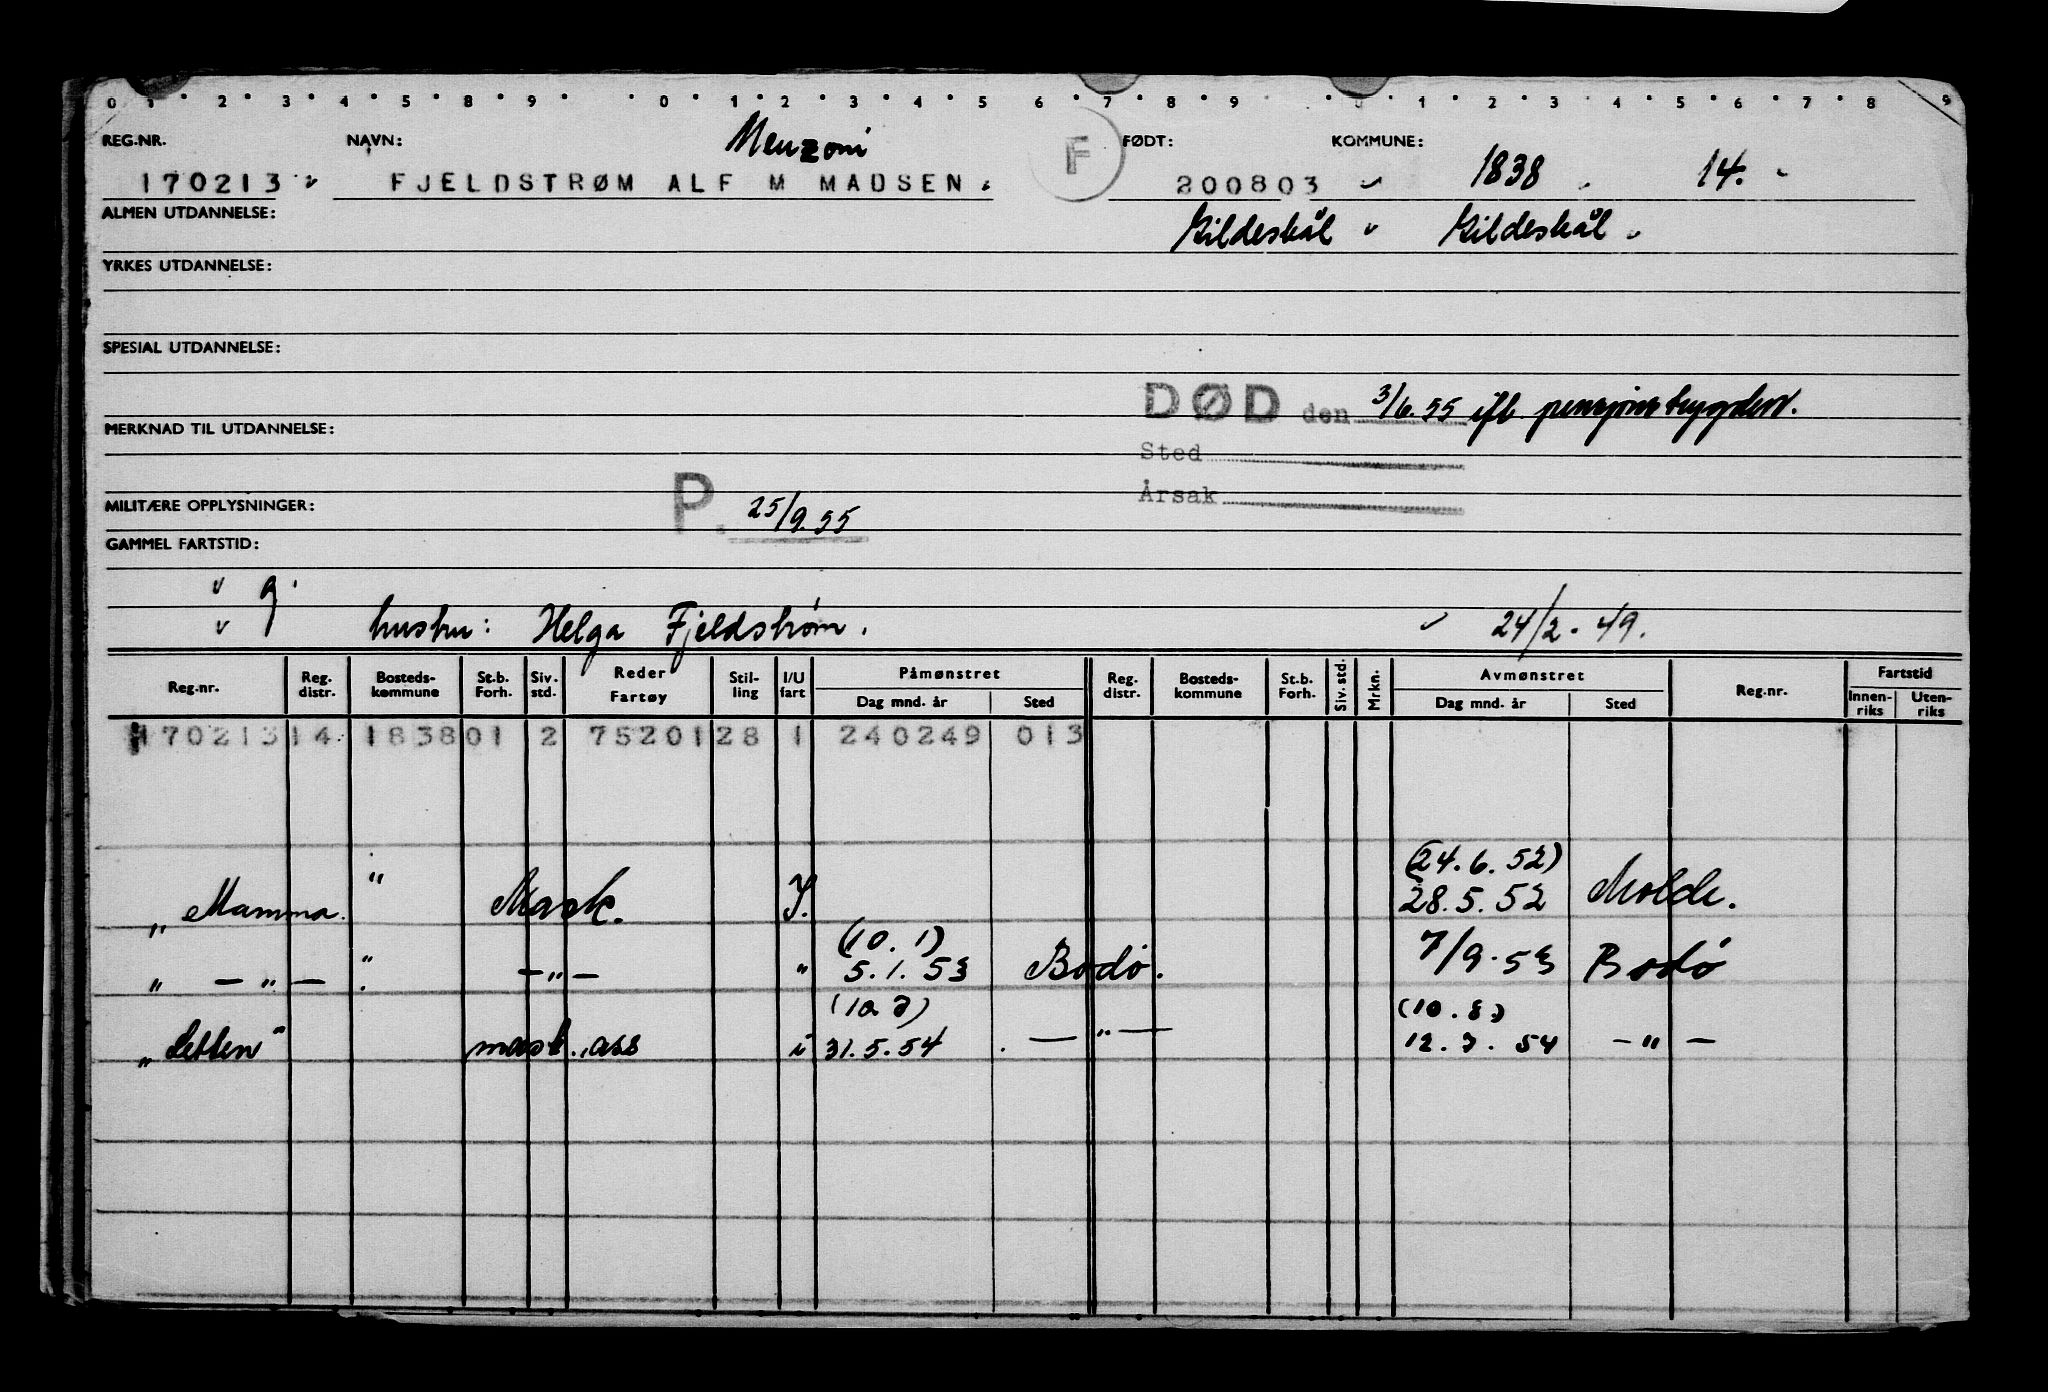 0 1 2 3 4 5 8 9 0 1 2 3 4 5 6 7 8 9 0 1 2 3 4 5 6 7 8 9
REG.NR. NAVN: Menzoni F FØDT: KOMMUNE:
170213 FJELDSTRØM ALF M MADSEN. 200803 1838 14.
ALMEN UTDANNELSE: Gildeskål Gildeskål
YRKES UTDANNELSE:
SPESIAL UTDANNELSE:
DØD den 3/6.55 ifl pensjonstrygden.
MERKNAD TIL UTDANNELSE:
Sted
Årsak
MILITÆRE OPPLYSNINGER: P. 25/9.55
GAMMEL FARTSTID:
g.
hustru: Helga Fjeldstrøm. 24/2.49.
Reg.nr. Reg. distr. Bosteds-kommune St.b. Forh. Siv. std. Reder Fartøy Stil-ling I/U fart Påmønstret Dag mnd. år Sted Reg. distr. Bosteds-kommune St.b. Forh. Siv. std. Mrkn. Avmønstret Dag mnd. år Sted Reg.nr. Fartstid Innen-riks Uten-riks
170213 14 1838 01 2 75201 28 1 240249 013
(24.6.52)
„Mamma. " Mask. I. 28.5.52 Molde.
(10.1)
„ —„— " —„— " 5.1.53 Bodø. 7/9.53 Bodø
31.5.54 —„— 12.7.54 —„—
mask.ass i